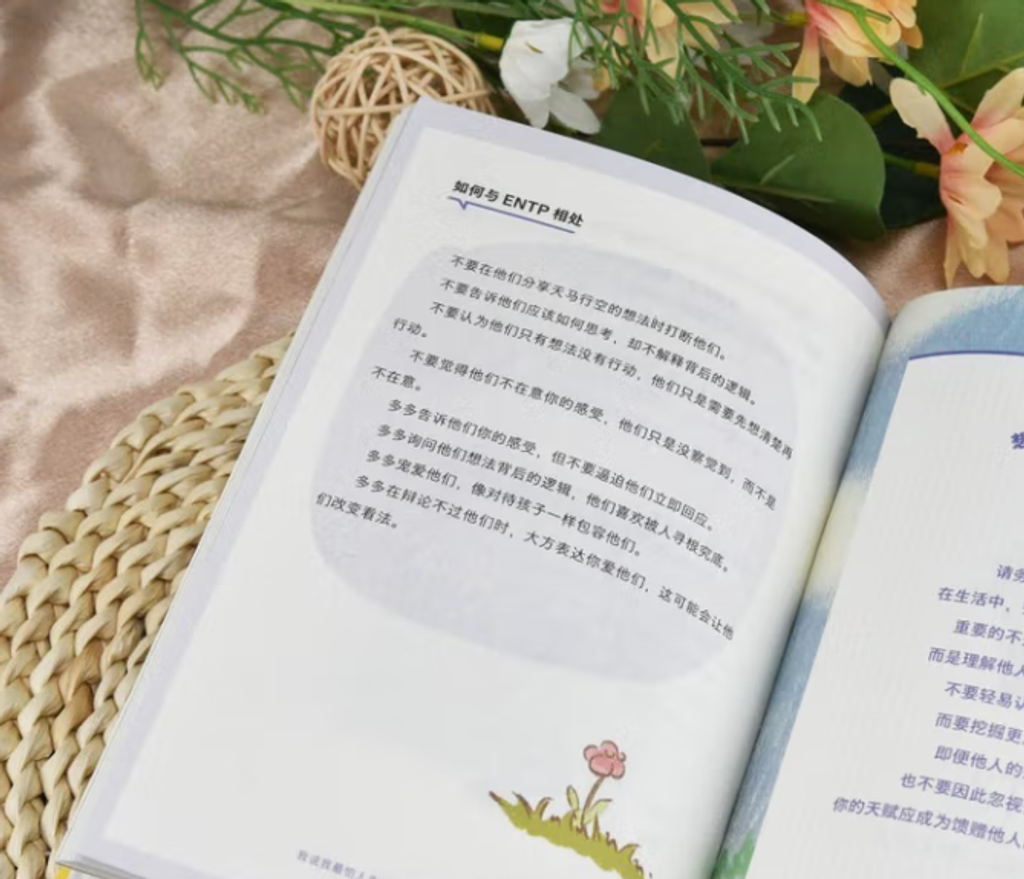 如何与 ENTP 相处
不要在他们分享天马行空的想法时打断他们。
不要告诉他们应该如何思考，却不解释背后的逻辑。
不要认为他们只有想法没有行动，他们只是需要先想清楚再
行动。
不要觉得他们不在意你的感受，他们只是没察觉到，而不是
不在意。
多多告诉他们你的感受，但不要逼迫他们立即回应。
多多询问他们想法背后的逻辑，他们喜欢被人寻根究底。
多多宠爱他们，像对待孩子一样包容他们。
多多在辩论不过他们时，大方表达你爱他们，这可能会让他
们改变看法。
请务
在生活中，
重要的不
而是理解他人
不要轻易认
而要挖掘更
即便他人的
也不要因此忽视
你的天赋应成为馈赠他人